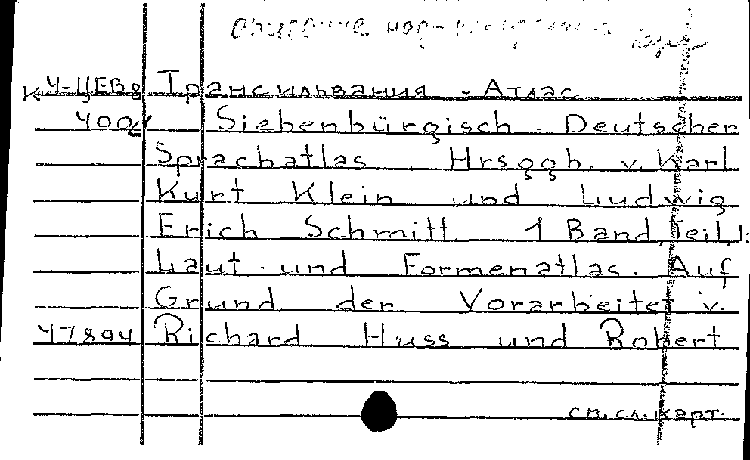 Трансильвания - Атлас
400
Siebenbürgisch - Deutscher
Sprachatlas. Hrsggb. v. Karl
Kurt Klein und Ludwig
Erich Schmitt. 1 Band, Teil 1:
Laut- und Formenatlas. Auf
Grund der Vorarbeiten v.
47894 Richard Huss und Robert
см. сл. карт.